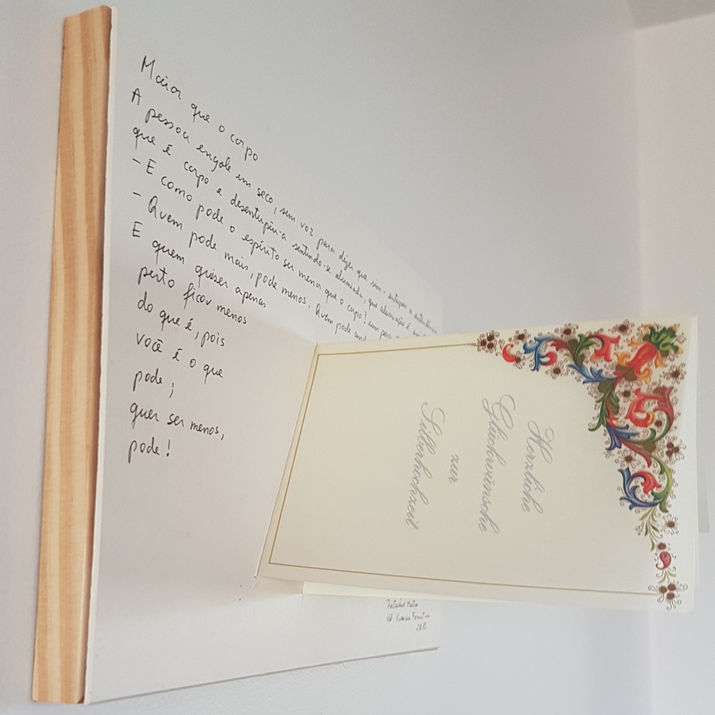 Maior que o corpo
A pessoa engole em seco, sem voz para dizer que sim
que é corpo e desentupiu-a sentindo-se
- E como pode o espírito ser menor que o corpo?
- Quem pode mais, pode menos. Quem pode
E quem quiser apenas
perto ficou menos
do que é, pois
você é o que
pode;
quer ser menos,
pode!
Herzliche
Glückwünsche
zur
Silberhochzeit